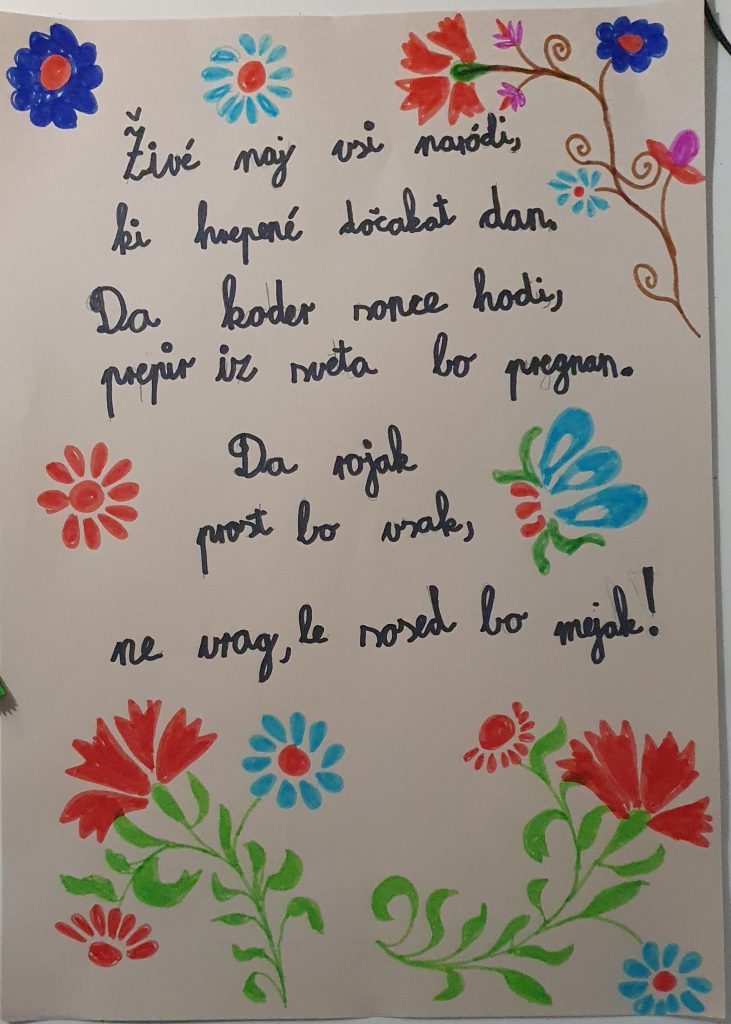 Živé naj vsi naródi,
ki hrepené dočakat dan.
Da koder sonce hodi,
prepir iz sveta bo pregnan.
Da rojak
prost bo vsak,
ne vrag, le sosed bo mejak!